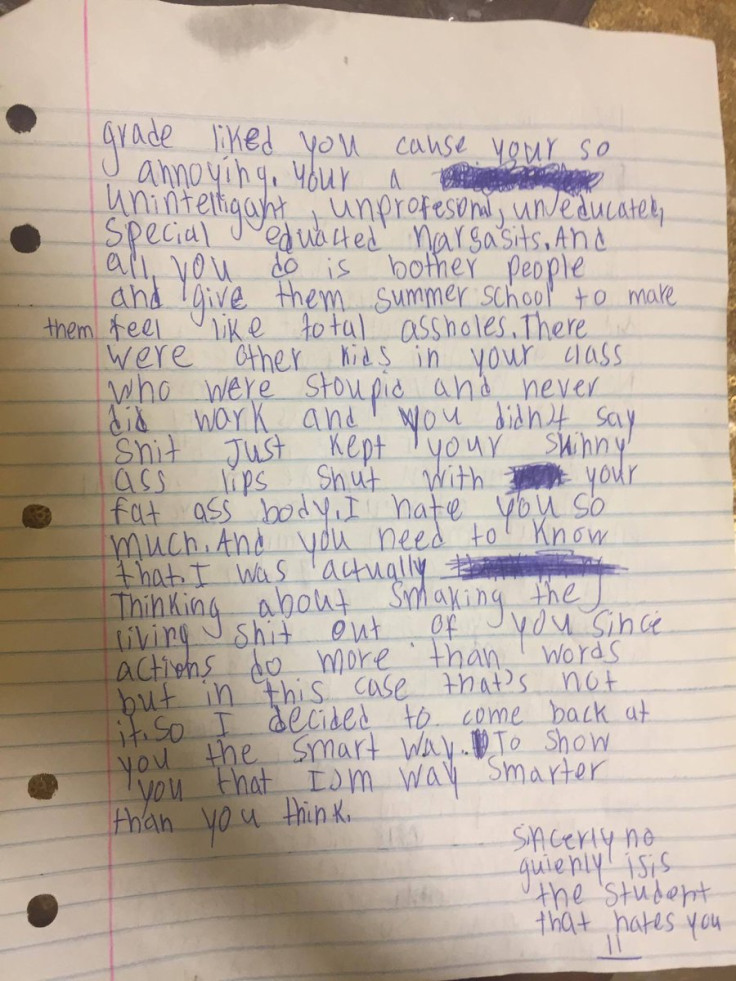 grade liked you cause your so
annoying. Your a
unintelligant, unprofesonal, un/educated,
special eduacted nargasits. And
all you do is bother people
and give them summer school to make
them feel like total assholes. There
were other kids in your class
who were stoupid and never
did work and you didn't say
shit Just kept your skinny
ass lips shut with your
fat ass body. I hate you so
much. And you need to know
that. I was actually
Thinking about smaking the
living shit out of you since
actions do more than words
but in this case that's not
it. So I decided to come back at
you the smart way. To show
you that I'm way smarter
than you think.
sincerly no
guienly isis
the student
that hates you